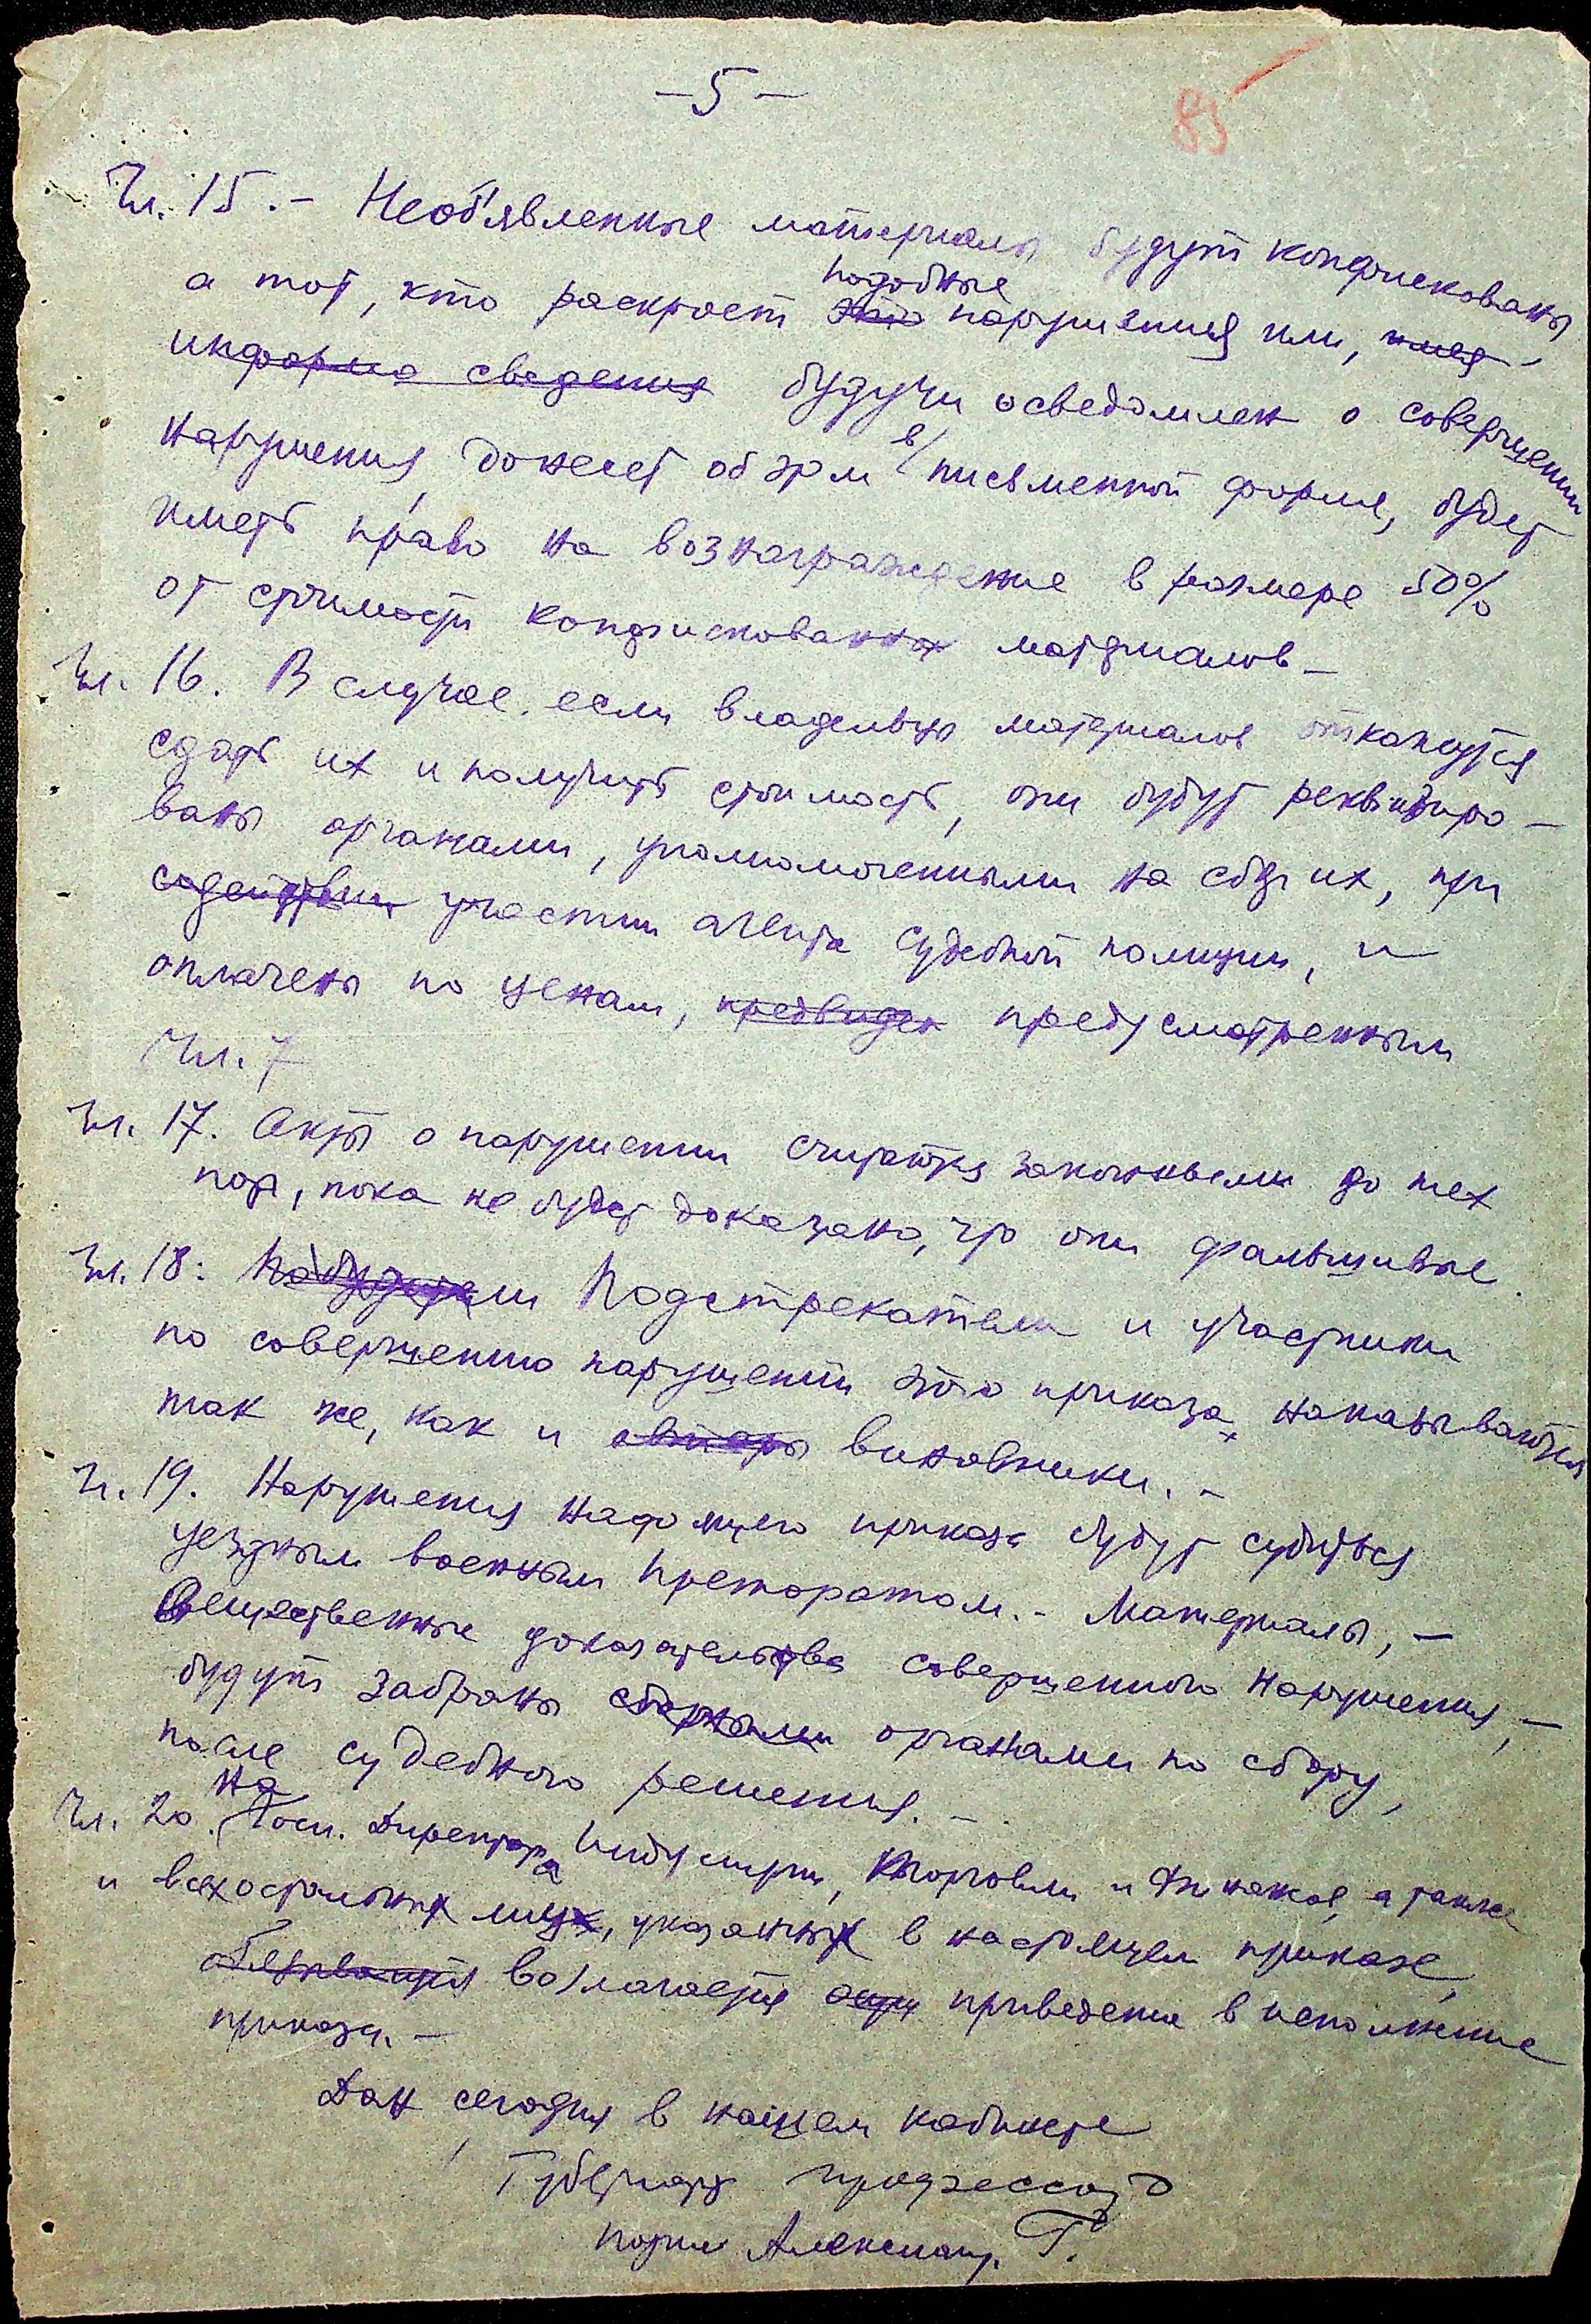 – 5 –
85
Чл. 15. – Необ'явленные материалы будут конфискованы
подобные
а тот, кто раскроет это нарушения или, имея
информа сведения будучи осведомлен о совершении
в
нарушения, донесет об этом писъменной форме, будет
иметь право на вознаграждение в размере 50%
от стоимости конфискованных материалов –
Чл. 16. В случае, если владельцы материалов откажутся
сдать их и получить стоимость, они будут реквизиро –
ваны органами, уполномоченными на сбор их, при
содействии участии агента судебной полиции, и
оплачены по ценам, предвиден предусмотренным
Чл. 7
Чл. 17. Акты о нарушении считаются законными до тех
пор, пока не будет доказано, что они фальшивые.
Чл. 18. Подстрекатели и участники
по совершению нарушений этого приказа, наказываются
так же, как и авторы виновники. –
Чл. 19. Нарушения настоящего приказа будут судиться
уездным военным Претором. – Материалы, –
Вещественные доказательства совершенного нарушения, –
будут забраны сборными органами по сбору,
после судебного решения. –
на
Чл. 20. Госп. Директора Индустрии, Торговли и Финансов, а также
и всех остальных лиц, указанных в настоящем приказе,
возлагается приведение в исполнение
приказа. –
Дан сегодня в нашем кабинете
Губернатор профессор
подпись Александр. Г.